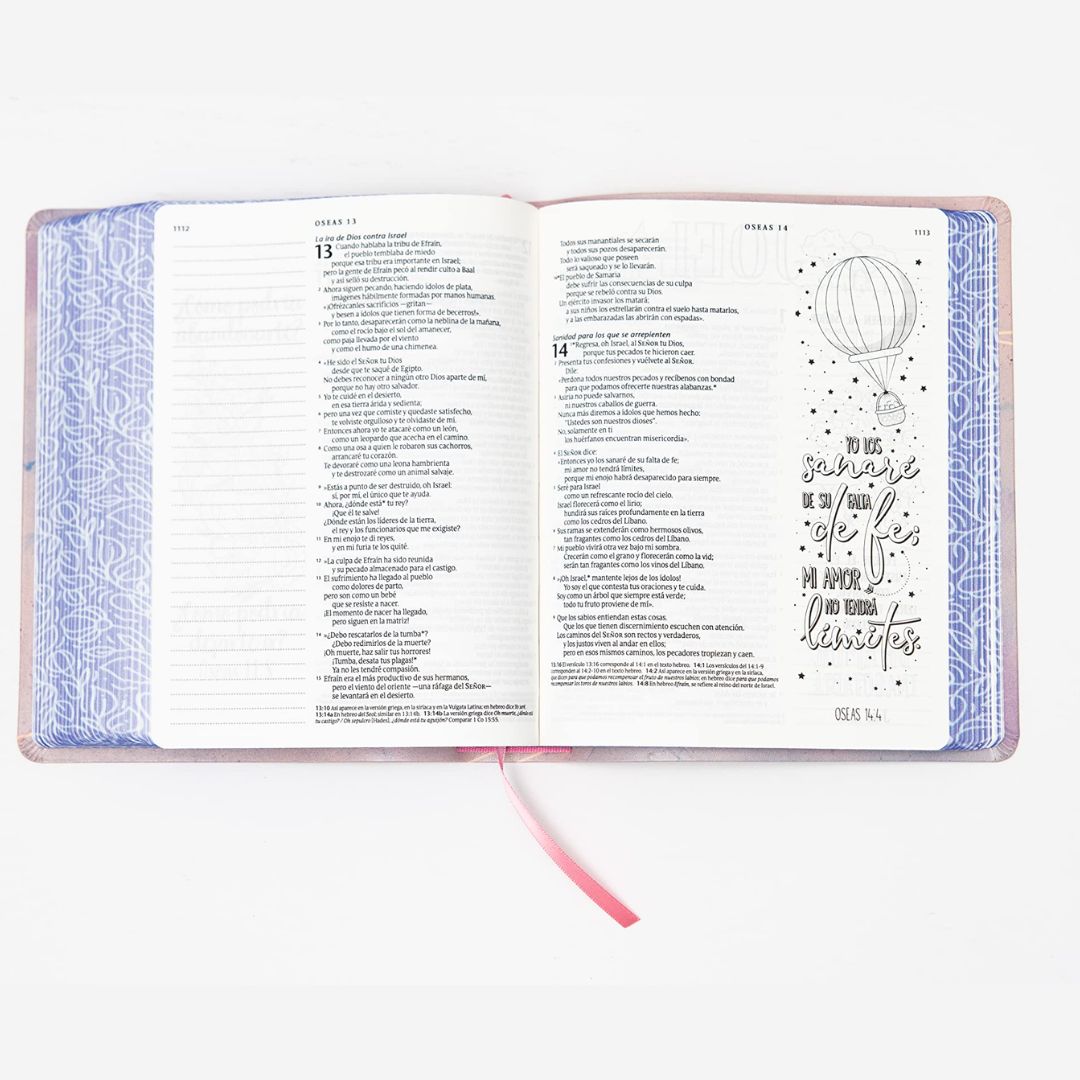 1112
OSEAS 13
La ira de Dios contra Israel
13 Cuando hablaba la tribu de Efraín,
el pueblo temblaba de miedo
porque esa tribu era importante en Israel;
pero la gente de Efraín pecó al rendir culto a Baal
y así selló su destrucción.
2 Ahora siguen pecando, haciendo ídolos de plata,
imágenes hábilmente formadas por manos humanas.
«¡Ofrézcanles sacrificios —gritan—
y besen a ídolos que tienen forma de becerros!».
3 Por lo tanto, desaparecerán como la neblina de la mañana,
como el rocío bajo el sol del amanecer,
como paja llevada por el viento
y como el humo de una chimenea.
4 »He sido el SEÑOR tu Dios
desde que te saqué de Egipto.
No debes reconocer a ningún otro Dios aparte de mí,
porque no hay otro salvador.
5 Yo te cuidé en el desierto,
en esa tierra árida y sedienta;
6 pero una vez que comiste y quedaste satisfecho,
te volviste orgulloso y te olvidaste de mí.
7 Entonces ahora yo te atacaré como un león,
como un leopardo que acecha en el camino.
8 Como una osa a quien le robaron sus cachorros,
arrancaré tu corazón.
Te devoraré como una leona hambrienta
y te destrozaré como un animal salvaje.
9 »Estás a punto de ser destruido, oh Israel;
sí, por mí, el único que te ayuda.
10 Ahora, ¿dónde está* tu rey?
¡Que él te salve!
¿Dónde están los líderes de la tierra,
el rey y los funcionarios que me exigiste?
11 En mi enojo te di reyes,
y en mi furia te los quité.
12 »La culpa de Efraín ha sido reunida
y su pecado almacenado para el castigo.
13 El sufrimiento ha llegado al pueblo
como dolores de parto,
pero son como un bebé
que se resiste a nacer.
¡El momento de nacer ha llegado,
pero siguen en la matriz!
14 »¿Debo rescatarlos de la tumba*?
¿Debo redimirlos de la muerte?
¡Oh muerte, haz salir tus horrores!
¡Tumba, desata tus plagas!*
Ya no les tendré compasión.
15 Efraín era el más productivo de sus hermanos,
pero el viento del oriente —una ráfaga del SEÑOR—
se levantará en el desierto.
13:10 Así aparece en la versión griega, en la siríaca y en la Vulgata Latina; en hebreo dice
13:14a En hebreo del Seol; similar en 13:14b. 13:14b La versión griega dice Oh muerte, ¿dónde está
tu castigo? / Oh sepulcro [Hades], ¿dónde está tu aguijón? Comparar 1 Co 15:55.
OSEAS 14
1113
Todos sus manantiales se secarán
y todos sus pozos desaparecerán.
Todo lo valioso que poseen
será saqueado y se lo llevarán.
16 *El pueblo de Samaria
debe sufrir las consecuencias de su culpa
porque se rebeló contra su Dios.
Un ejército invasor los matará;
a sus niños los estrellarán contra el suelo hasta matarlos,
y a las embarazadas las abrirán con espadas».
Sanidad para los que se arrepienten
14 *Regresa, oh Israel, al SEÑOR tu Dios,
porque tus pecados te hicieron caer.
2 Presenta tus confesiones y vuélvete al SEÑOR.
Dile:
«Perdona todos nuestros pecados y recíbenos con bondad
para que podamos ofrecerte nuestras alabanzas.*
3 Asiria no puede salvarnos,
ni nuestros caballos de guerra.
Nunca más diremos a ídolos que hemos hecho:
"Ustedes son nuestros dioses".
No, solamente en ti
los huérfanos encuentran misericordia».
4 El SEÑOR dice:
«Entonces yo los sanaré de su falta de fe;
mi amor no tendrá límites,
porque mi enojo habrá desaparecido para siempre.
5 Seré para Israel
como un refrescante rocío del cielo.
Israel florecerá como el lirio;
hundirá sus raíces profundamente en la tierra
como los cedros del Líbano.
6 Sus ramas se extenderán como hermosos olivos,
tan fragantes como los cedros del Líbano.
7 Mi pueblo vivirá otra vez bajo mi sombra.
Crecerán como el grano y florecerán como la vid;
serán tan fragantes como los vinos del Líbano.
8 »¡Oh Israel,* mantente lejos de los ídolos!
Yo soy el que contesta tus oraciones y te cuida.
Soy como un árbol que siempre está verde;
todo tu fruto proviene de mí».
9 Que los sabios entiendan estas cosas.
Que los que tienen discernimiento escuchen con atención.
Los caminos del SEÑOR son rectos y verdaderos,
y los justos viven al andar en ellos;
pero en esos mismos caminos, los pecadores tropiezan y caen.
13:16 El versículo 13:16 corresponde al 14:1 en el texto hebreo. 14:1 Los versículos del 14:1-9
corresponden al 14:2-10 en el texto hebreo. 14:2 Así aparece en la versión griega y en la siríaca,
que dicen para que podamos recompensar el fruto de nuestros labios; en hebreo dice para que podamos
recompensar los toros de nuestros labios. 14:8 En hebreo Efraín, se refiere al reino del norte de Israel.
YO LOS
sanaré
DE SU FALTA
de fe;
MI AMOR
NO TENDRÁ
límites.
OSEAS 14:4